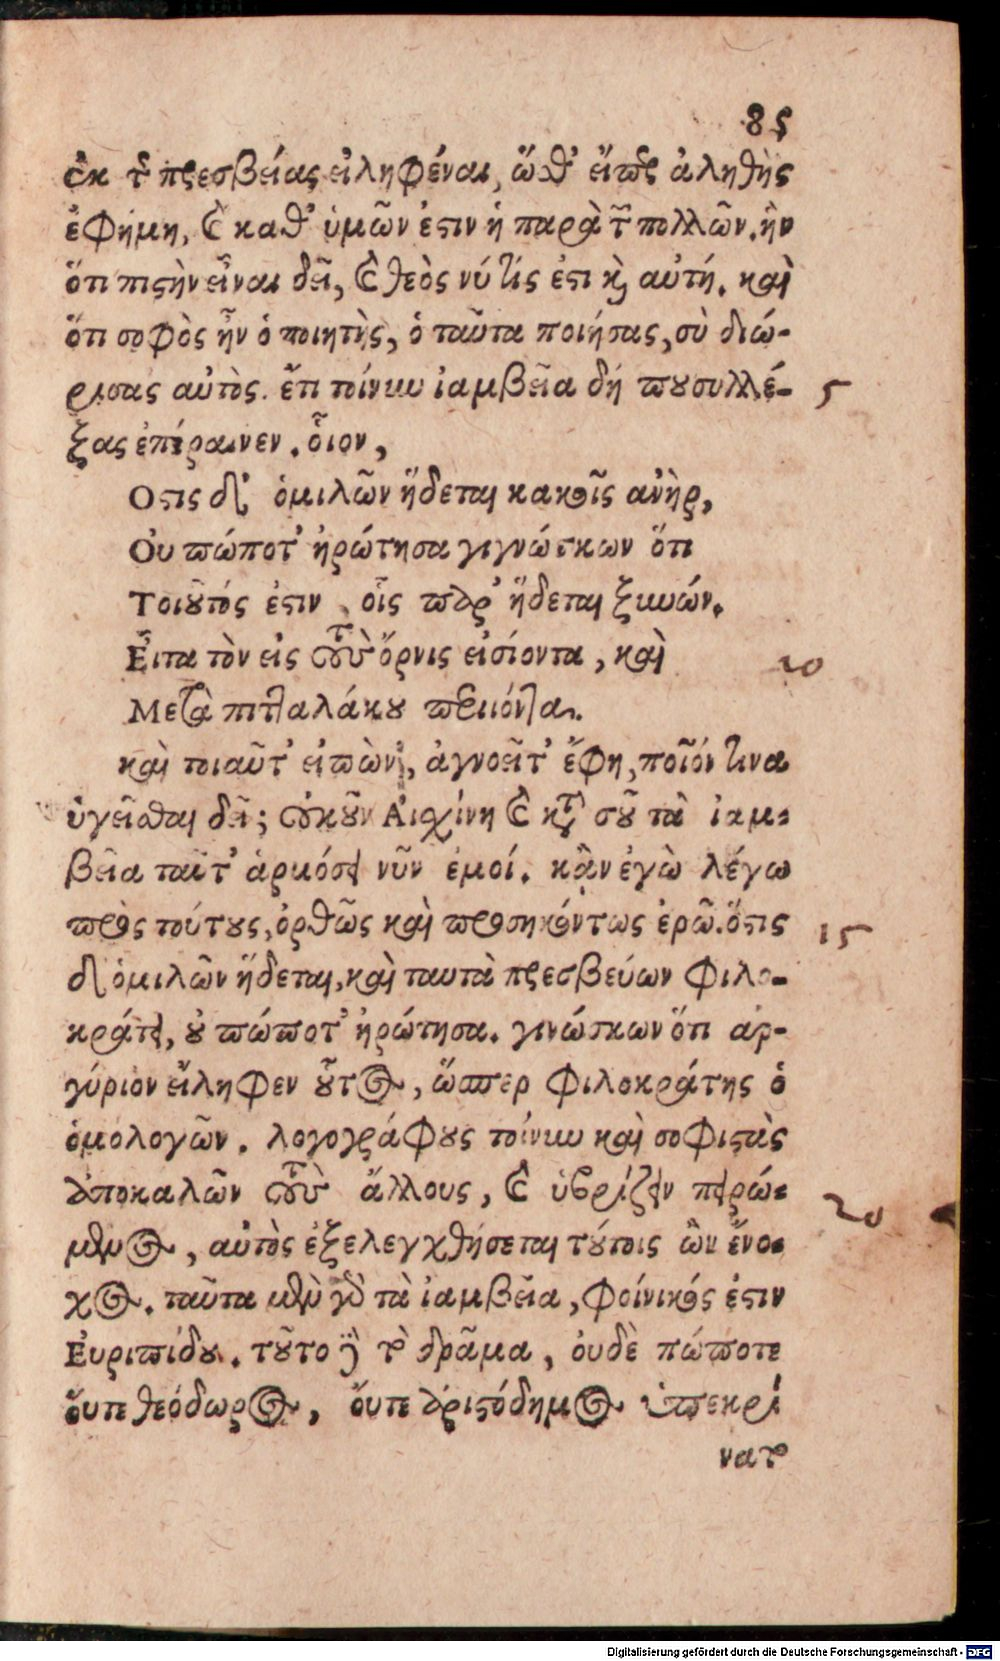 85
ἐκ τῆς πρεσβείας εἰληφέναι, ὥσθ' εἴπερ ἀληθὴς
ἐφήμη, καὶ καθ' ὑμῶν ἐστιν ἡ παρὰ τῶν πολλῶν. ἣν
ὅτι πιστὴν εἶναι δεῖ, καὶ θεὸς νύ τίς ἐστι καὶ αὐτή. καὶ
ὅτι σοφὸς ἦν ὁ ποιητὴς, ὁ ταῦτα ποιήσας, σὺ διώ-
ρισας αὐτὸς. ἔτι τοίνυν ἰαμβεῖα δή που συλλέ- 5
ξας ἐπέραινεν. οἷον,
Οστις δ' ὁμιλῶν ἥδεται κακοῖς ἀνὴρ,
Οὐ πώποτ' ἠρώτησα γιγνώσκων ὅτι
Τοιοῦτός ἐστιν, οἷς περ ἥδεται ξυνών.
Εἶτα τὸν εἰς τοὺς ὄρνις εἰσίοντα, καὶ 10
Μετὰ πιτταλάκου περιιόντα.
καὶ τοιαῦτ' εἰπὼν, ἀγνοεῖτ' ἔφη, ποῖόν τινα
ἡγεῖσθαι δεῖ; οὐκοῦν Αἰσχίνη καὶ κατὰ σοῦ τὰ ἰαμ-
βεῖα ταῦτ' ἁρμόσει νῦν ἐμοί. κἂν ἐγὼ λέγω
πρὸς τούτους, ὀρθῶς καὶ προσηκόντως ἐρῶ. ὅστις 15
δ' ὁμιλῶν ἥδεται, καὶ ταυτὰ πρεσβεύων Φιλο-
κράτει, οὐ πώποτ' ἠρώτησα. γινώσκων ὅτι ἀρ-
γύριον εἴληφεν οὗτος, ὥσπερ Φιλοκράτης ὁ
ὁμολογῶν. λογογράφους τοίνυν καὶ σοφιστὰς
ἀποκαλῶν τοὺς ἄλλους, καὶ ὑβρίζειν πειρώ- 20
μενος, αὐτὸς ἐξελεγχθήσεται τούτοις ὢν ἔνο-
χος. ταῦτα μὲν γὰρ τὰ ἰαμβεῖα, Φοίνικός ἐστιν
Εὐριπίδου. τοῦτο δὲ τὸ δρᾶμα, οὐδὲ πώποτε
οὔτε θεόδωρος, οὔτε ἀριστόδημος ὑπεκρί
νατο
Digitalisierung gefördert durch die Deutsche Forschungsgemeinschaft - DFG